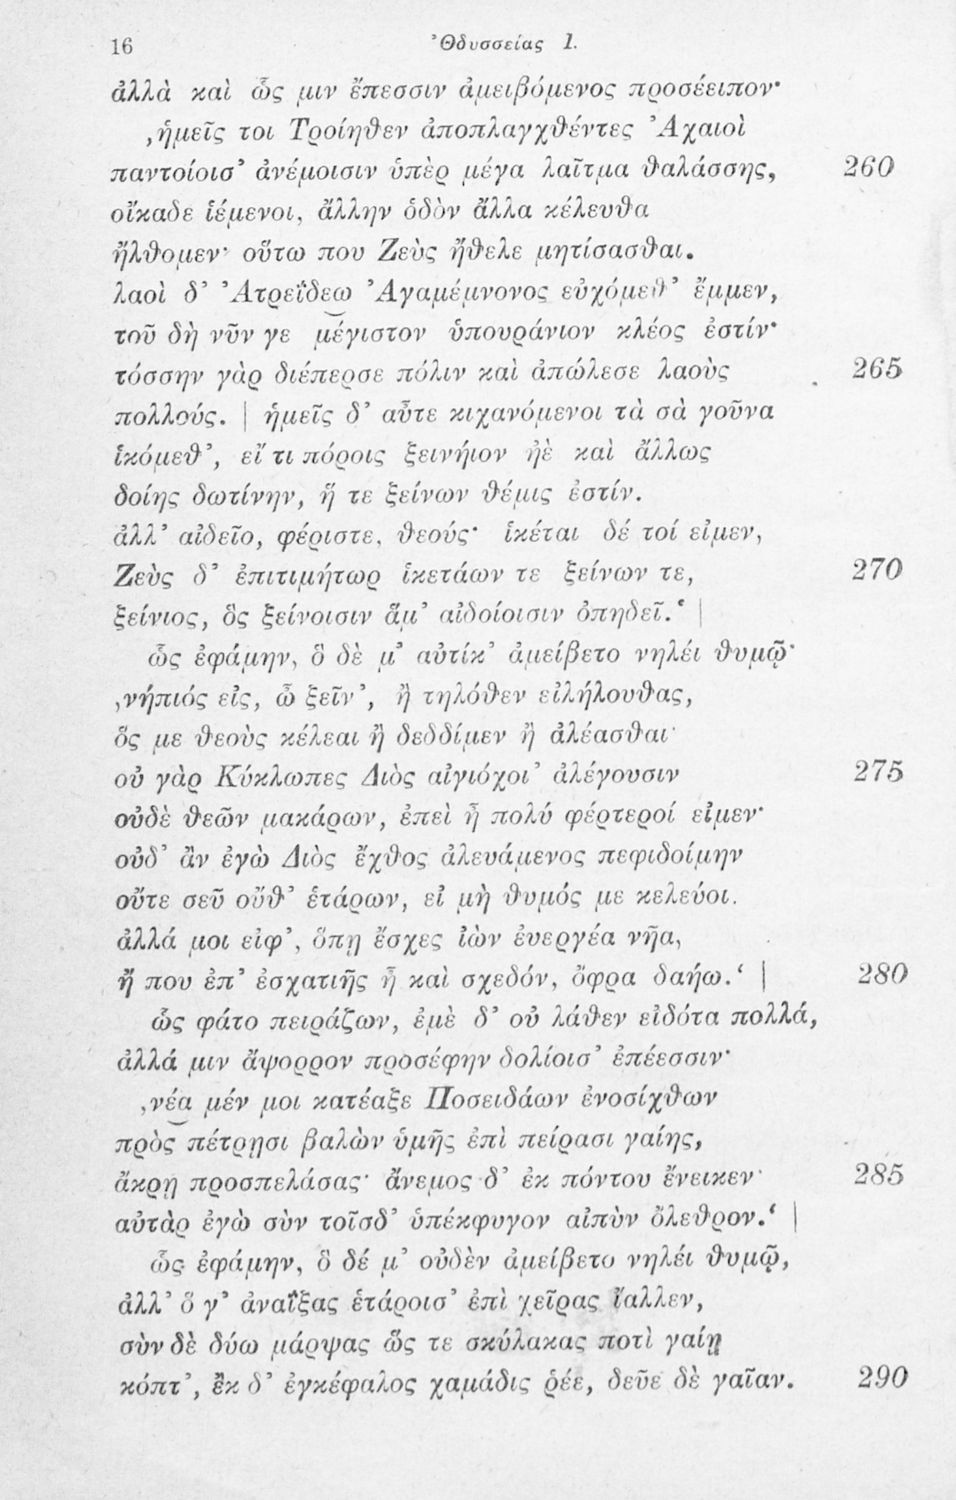 16 Ὀδυσσείας Ι.
ἀλλὰ καὶ ὧς μιν ἔπεσσιν ἀμειβόμενος προσέειπον·
‚ἡμεῖς τοι Τροίηθεν ἀποπλαγχθέντες Ἀχαιοὶ
παντοίοισ’ ἀνέμοισιν ὑπὲρ μέγα λαῖτμα θαλάσσης, 260
οἴκαδε ἱέμενοι, ἄλλην ὁδὸν ἄλλα κέλευθα
ἤλθομεν· οὕτω που Ζεὺς ἤθελε μητίσασθαι.
λαοὶ δ’ Ἀτρεΐδεω Ἀγαμέμνονος εὐχόμεθ’ ἔμμεν,
τοῦ δὴ νῦν γε μέγιστον ὑπουράνιον κλέος ἐστίν·
τόσσην γὰρ διέπερσε πόλιν καὶ ἀπώλεσε λαοὺς 265
πολλούς. | ἡμεῖς δ’ αὖτε κιχανόμενοι τὰ σὰ γοῦνα
ἱκόμεθ’, εἴ τι πόροις ξεινήιον ἠὲ καὶ ἄλλως
δοίης δωτίνην, ἥ τε ξείνων θέμις ἐστίν.
ἀλλ’ αἰδεῖο, φέριστε, θεούς· ἱκέται δέ τοί εἰμεν,
Ζεὺς δ’ ἐπιτιμήτωρ ἱκετάων τε ξείνων τε, 270
ξείνιος, ὃς ξείνοισιν ἅμ’ αἰδοίοισιν ὀπηδεῖ.‘ |
ὧς ἐφάμην, ὃ δὲ μ’ αὐτίκ’ ἀμείβετο νηλέι θυμῷ·
‚νήπιός εἰς, ὦ ξεῖν’, ἢ τηλόθεν εἰλήλουθας,
ὅς με θεοὺς κέλεαι ἢ δεδδίμεν ἢ ἀλέασθαι·
οὐ γὰρ Κύκλωπες Διὸς αἰγιόχοι’ ἀλέγουσιν 275
οὐδὲ θεῶν μακάρων, ἐπεὶ ἦ πολύ φέρτεροί εἰμεν·
οὐδ’ ἂν ἐγὼ Διὸς ἔχθος ἀλευάμενος πεφιδοίμην
οὔτε σεῦ οὔθ’ ἑτάρων, εἰ μὴ θυμός με κελεύοι.
ἀλλά μοι εἰφ’, ὅπῃ ἔσχες ἰὼν ἐυεργέα νῆα,
ἤ που ἐπ’ ἐσχατιῆς ἦ καὶ σχεδόν, ὄφρα δαήω.‘ | 280
ὧς φάτο πειράζων, ἐμὲ δ’ οὐ λάθεν εἰδότα πολλά,
ἀλλά μιν ἄψορρον προσέφην δολίοισ’ ἐπέεσσιν·
‚νέα μέν μοι κατέαξε Ποσειδάων ἐνοσίχθων
πρὸς πέτρῃσι βαλὼν ὑμῆς ἐπὶ πείρασι γαίης,
ἄκρῃ προσπελάσας· ἄνεμος δ’ ἐκ πόντου ἔνεικεν· 285
αὐτὰρ ἐγὼ σὺν τοῖσδ’ ὑπέκφυγον αἰπὺν ὄλεθρον.‘ |
ὧς ἐφάμην, ὃ δέ μ’ οὐδὲν ἀμείβετο νηλέι θυμῷ,
ἀλλ’ ὅ γ’ ἀναΐξας ἑτάροισ’ ἐπὶ χεῖρας ἴαλλεν,
σὺν δὲ δύω μάρψας ὥς τε σκύλακας ποτὶ γαίῃ
κόπτ’, ἐκ δ’ ἐγκέφαλος χαμάδις ῥέε, δεῦε δὲ γαῖαν. 290